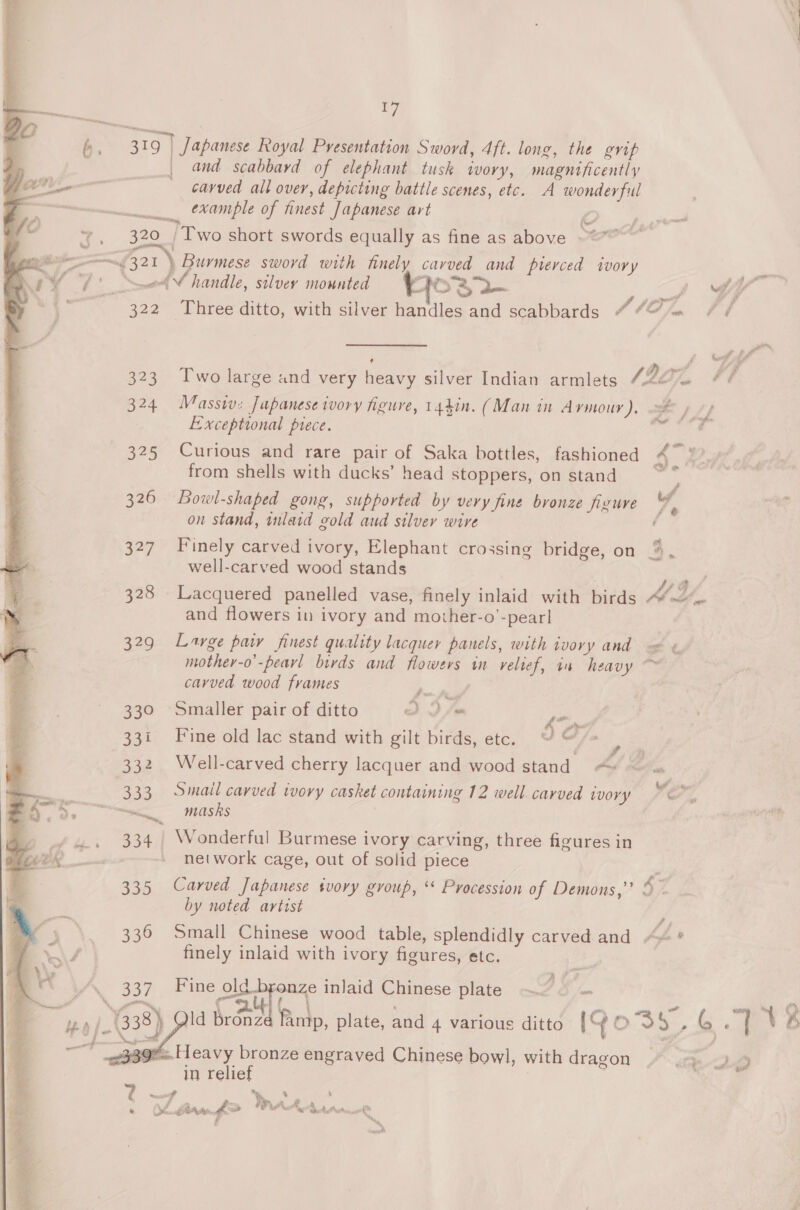 17
319 Japanese Royal Presentation Sword, 4ft. long, the grip
and scabbard of elephant tusk ivory, magnificently
carved all over, depicting battle scenes, etc. A wonderful
example of finest Japanese art
320 Two short swords equally as fine as above
321 Burmese sword with finely carved and pierced ivory
handle, silver mounted
322 Three ditto, with silver handles and scabbards
323 Two large and very heavy silver Indian armlets
324 Massive Japanese ivory figure, 14½in. (Man in Armour).
Exceptional piece.
325 Curious and rare pair of Saka bottles, fashioned
from shells with ducks' head stoppers, on stand
326 Bowl-shaped gong, supported by very fine bronze figure
on stand, inlaid gold aud silver wire
327 Finely carved ivory, Elephant crossing bridge, on
well-carved wood stands
328 Lacquered panelled vase, finely inlaid with birds
and flowers in ivory and mother-o'-pearl
329 Large pair finest quality lacquer panels, with ivory and
mother-o'-pearl birds and flowers in relief, in heavy
carved wood frames
330 Smaller pair of ditto
331 Fine old lac stand with gilt birds, etc.
332 Well-carved cherry lacquer and wood stand
333 Small carved ivory casket containing 12 well carved ivory
masks
334 Wonderful Burmese ivory carving, three figures in
network cage, out of solid piece
335 Carved Japanese ivory group, “Procession of Demons,”
by noted artist
336 Small Chinese wood table, splendidly carved and
finely inlaid with ivory figures, etc.
337 Fine old bronze inlaid Chinese plate
338 Old bronze lamp, plate, and 4 various ditto
339 Heavy bronze engraved Chinese bowl, with dragon
in relief